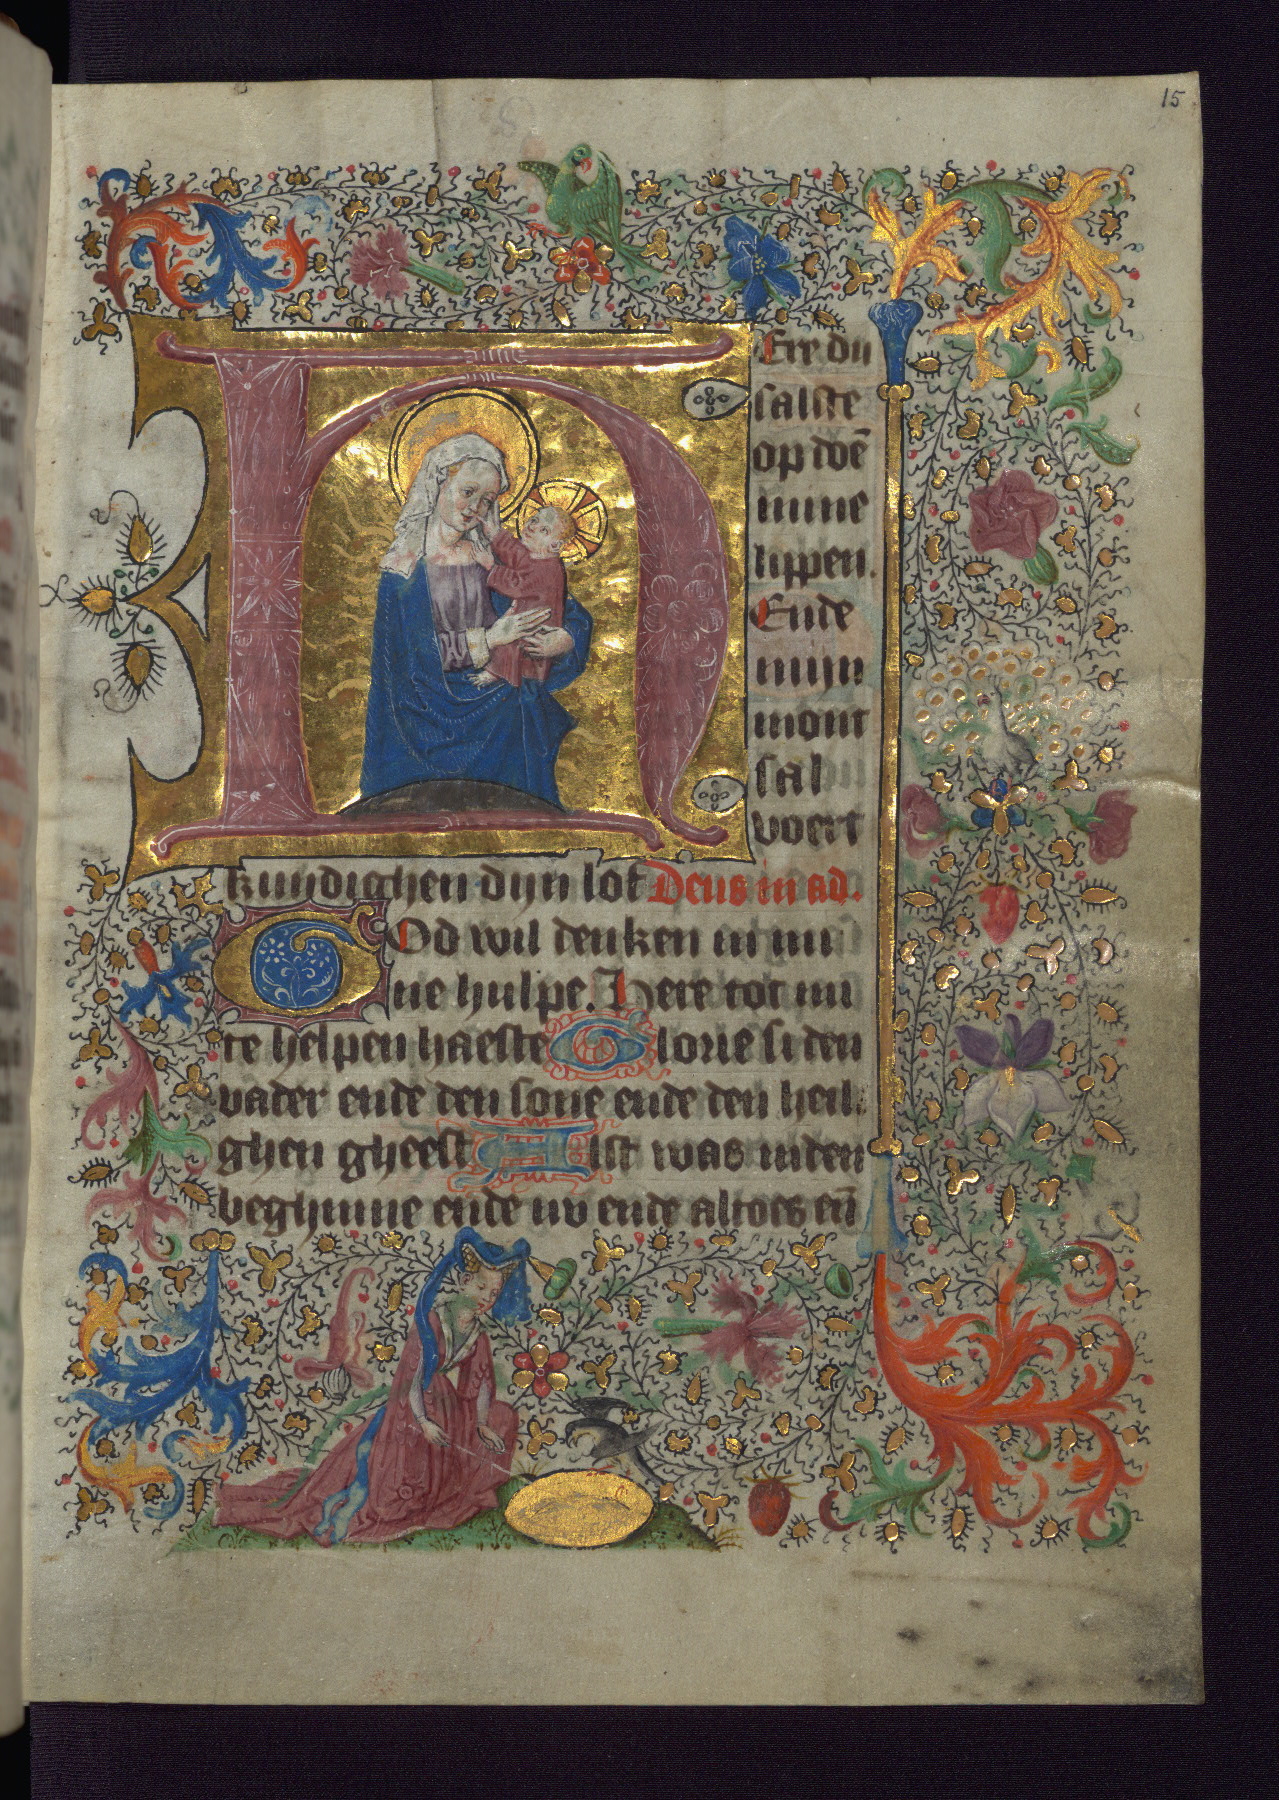 15
HEre du
salste
op doē
mine
lippen.
Ende
mijn
mont
sal
voert
kundighen dijn lof Deus in ad.
God wil denken in mi
ne hulpe. Here tot mi
te helpen haeste Glorie si den
vader ende den sone ende den heili
ghen gheest Alst was inden
beghinne ende nv ende altoes eñ